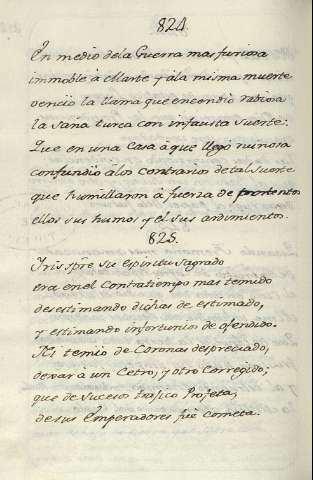 824.
En medio dela Guerra mas furiosa
immoble à Marte y ala misma muerte
vencio la llama que encendio rabiosa
la saña turca con infausta suerte:
Que en una Casa à que llegò ruinosa
confundiò àlos contrarios detal suerte
que humillaron à fuerza de portentos
ellos sus humos y el sus ardimientos.
825.
Iris spre su espiritu sagrado
era en el Contratiempo mas temido
desestimando dichas de estimado,
y estimando infortunios de ofendido.
temio de Coronas despreciado,
dexar à un Cetro, y otro Corregido;
que de sucesos trafico Profeta,
desus Emperadores fuè Cometa.